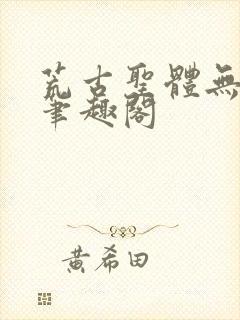 荒古聖體無
筆趣閣
黃希田